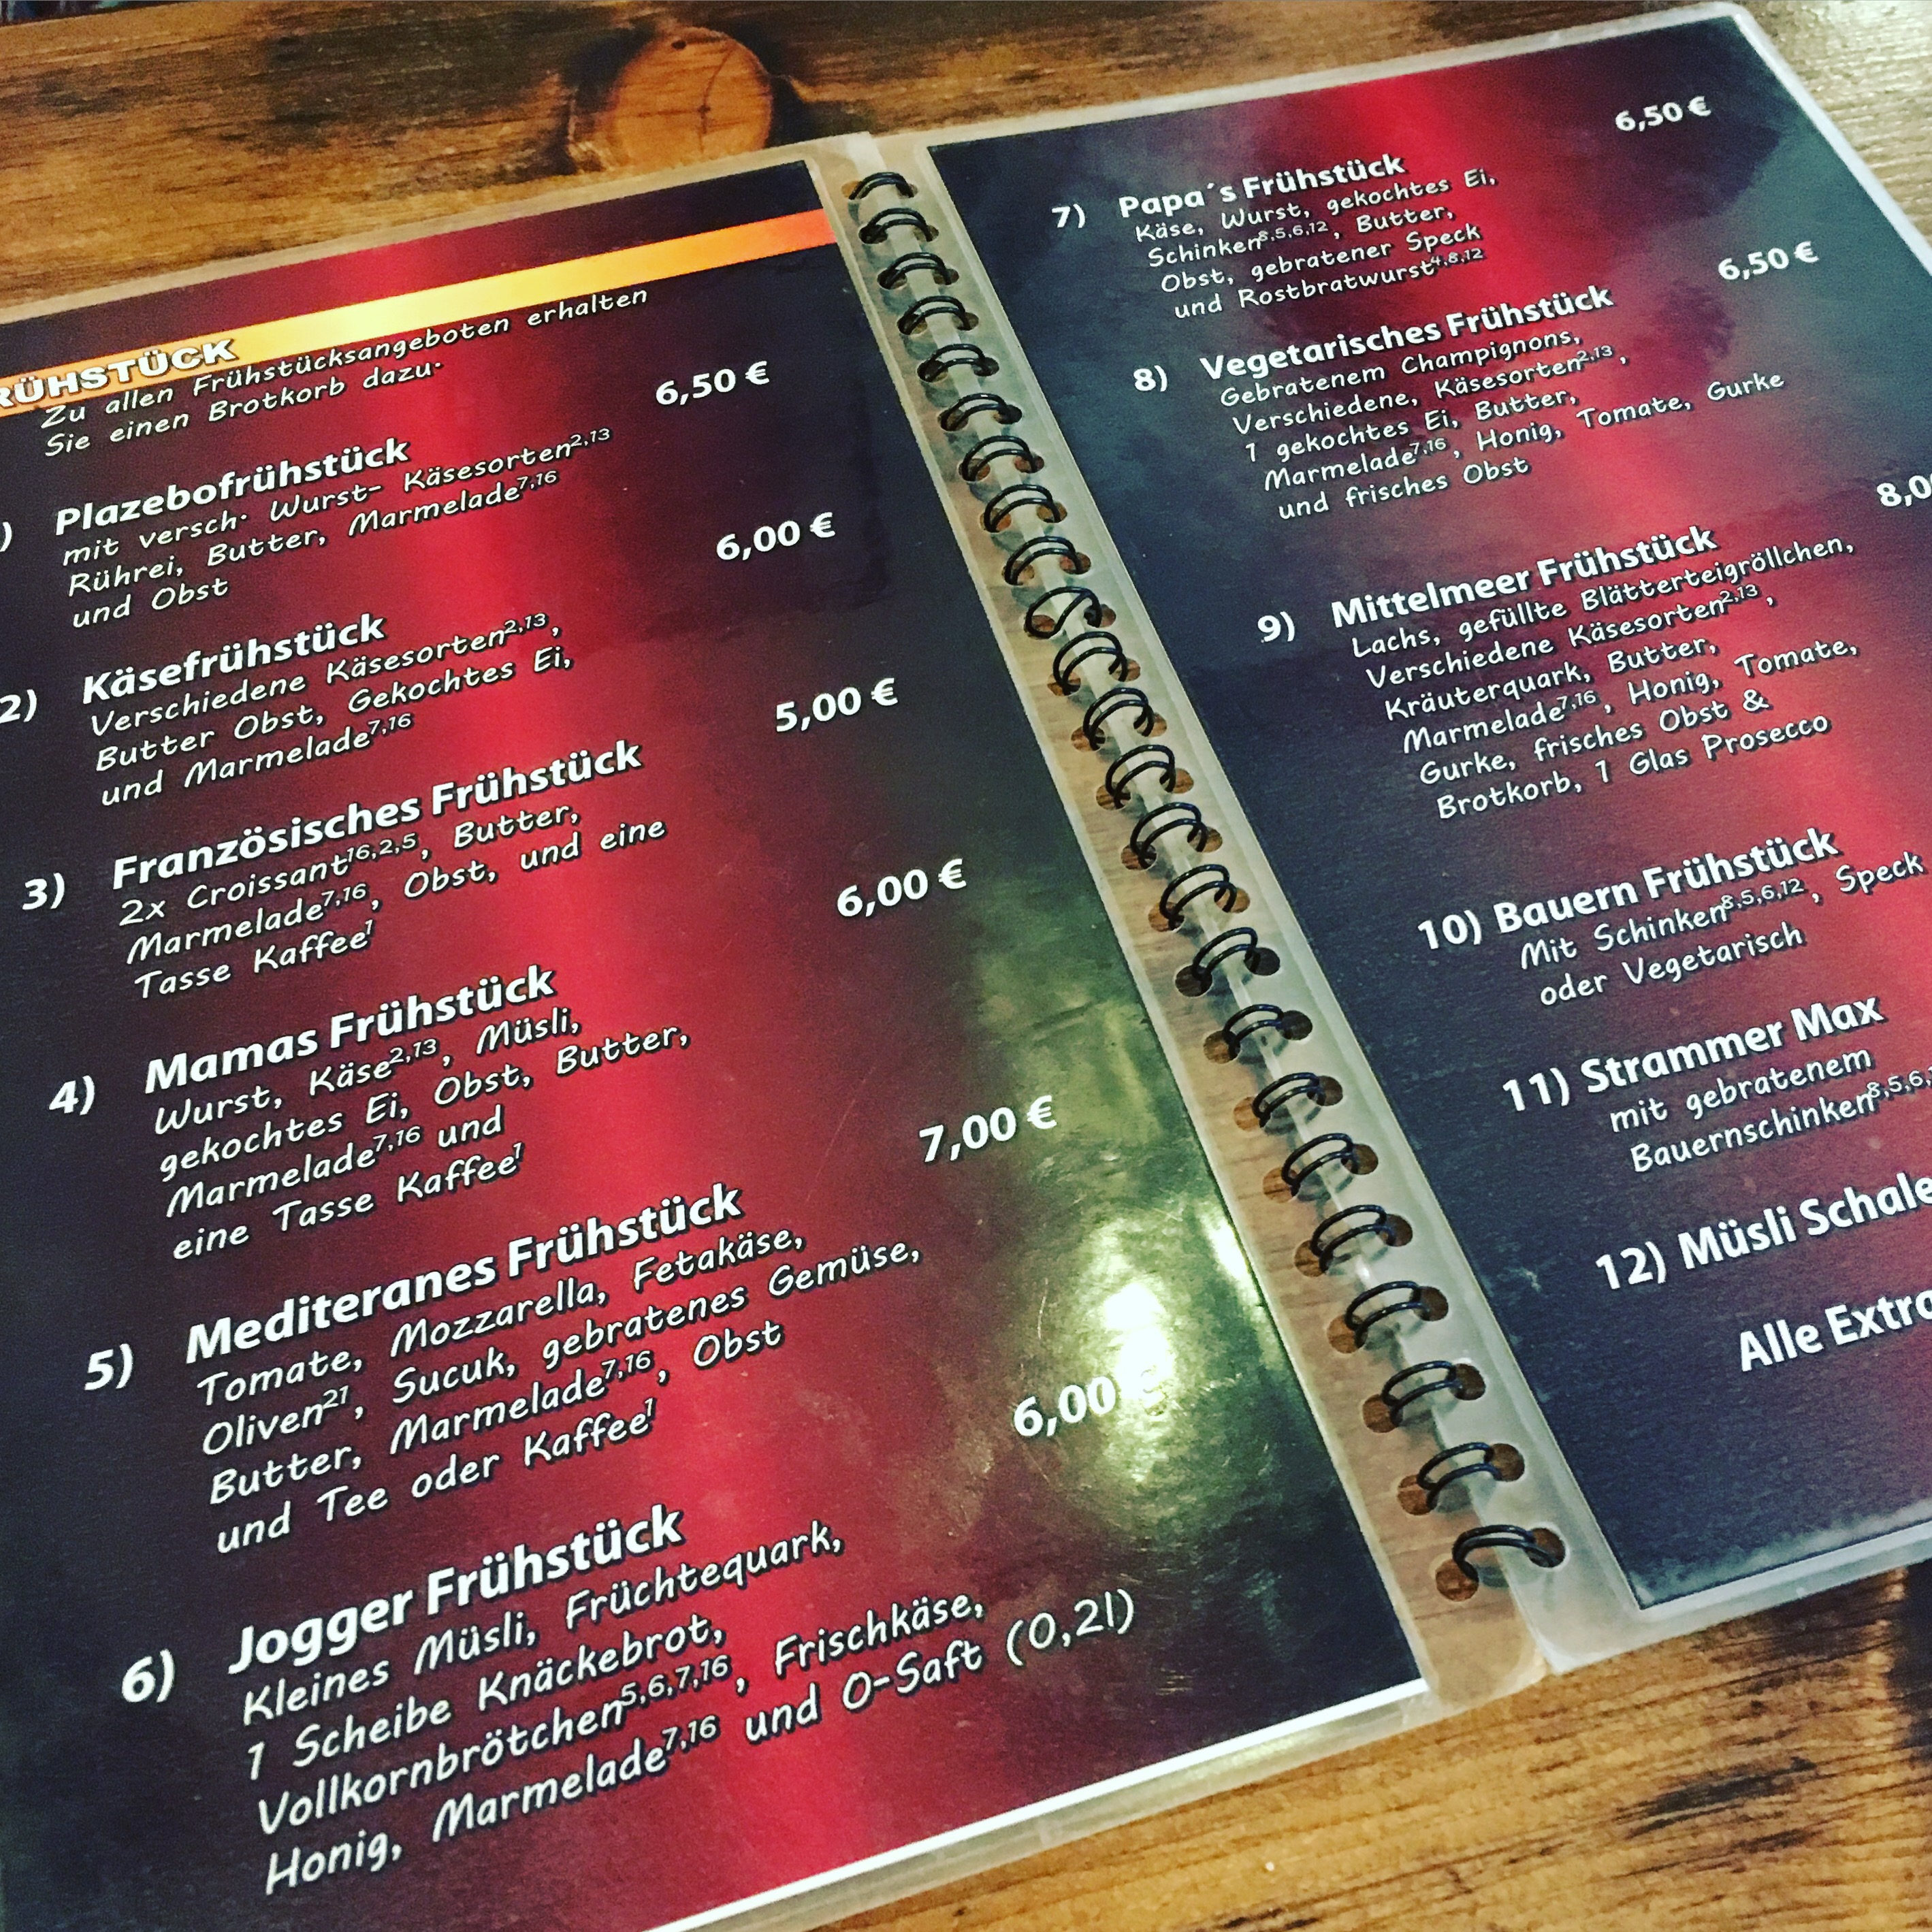 RÜHSTÜCK
Zu allen Frühstücksangeboten erhalten
Sie einen Brotkorb dazu.
) Plazebofrühstück 6,50 €
mit versch. Wurst- Käsesorten2,13
Rührei, Butter, Marmelade7,16
und Obst
2) Käsefrühstück 6,00 €
Verschiedene Käsesorten2,13,
Butter Obst, Gekochtes Ei,
und Marmelade7,16
3) Französisches Frühstück 5,00 €
2x Croissant16,2,5, Butter,
Marmelade7,16, Obst, und eine
Tasse Kaffee1
4) Mamas Frühstück 6,00 €
Wurst, Käse2,13, Müsli,
gekochtes Ei, Obst, Butter,
Marmelade7,16 und
eine Tasse Kaffee1
5) Mediteranes Frühstück 7,00 €
Tomate, Mozzarella, Fetakäse,
Oliven21, Sucuk, gebratenes Gemüse,
Butter, Marmelade7,16, Obst
und Tee oder Kaffee1
6) Jogger Frühstück 6,00 €
Kleines Müsli, Früchtequark,
1 Scheibe Knäckebrot,
Vollkornbrötchen5,6,7,16, Frischkäse,
Honig, Marmelade7,16 und O-Saft (0,2l)
7) Papa´s Frühstück 6,50 €
Käse, Wurst, gekochtes Ei,
Schinken8,5,6,12, Butter,
Obst, gebratener Speck
und Rostbratwurst4,8,12
8) Vegetarisches Frühstück 6,50 €
Gebratenem Champignons,
Verschiedene, Käsesorten2,13,
1 gekochtes Ei, Butter,
Marmelade7,16, Honig, Tomate, Gurke
und frisches Obst
9) Mittelmeer Frühstück 8,0
Lachs, gefüllte Blätterteigröllchen,
Verschiedene Käsesorten2,13,
Kräuterquark, Butter,
Marmelade7,16, Honig, Tomate,
Gurke, frisches Obst &
Brotkorb, 1 Glas Prosecco
10) Bauern Frühstück
Mit Schinken8,5,6,12, Speck
oder Vegetarisch
11) Strammer Max
mit gebratenem
Bauernschinken8,5,6,
12) Müsli Schale
Alle Extra